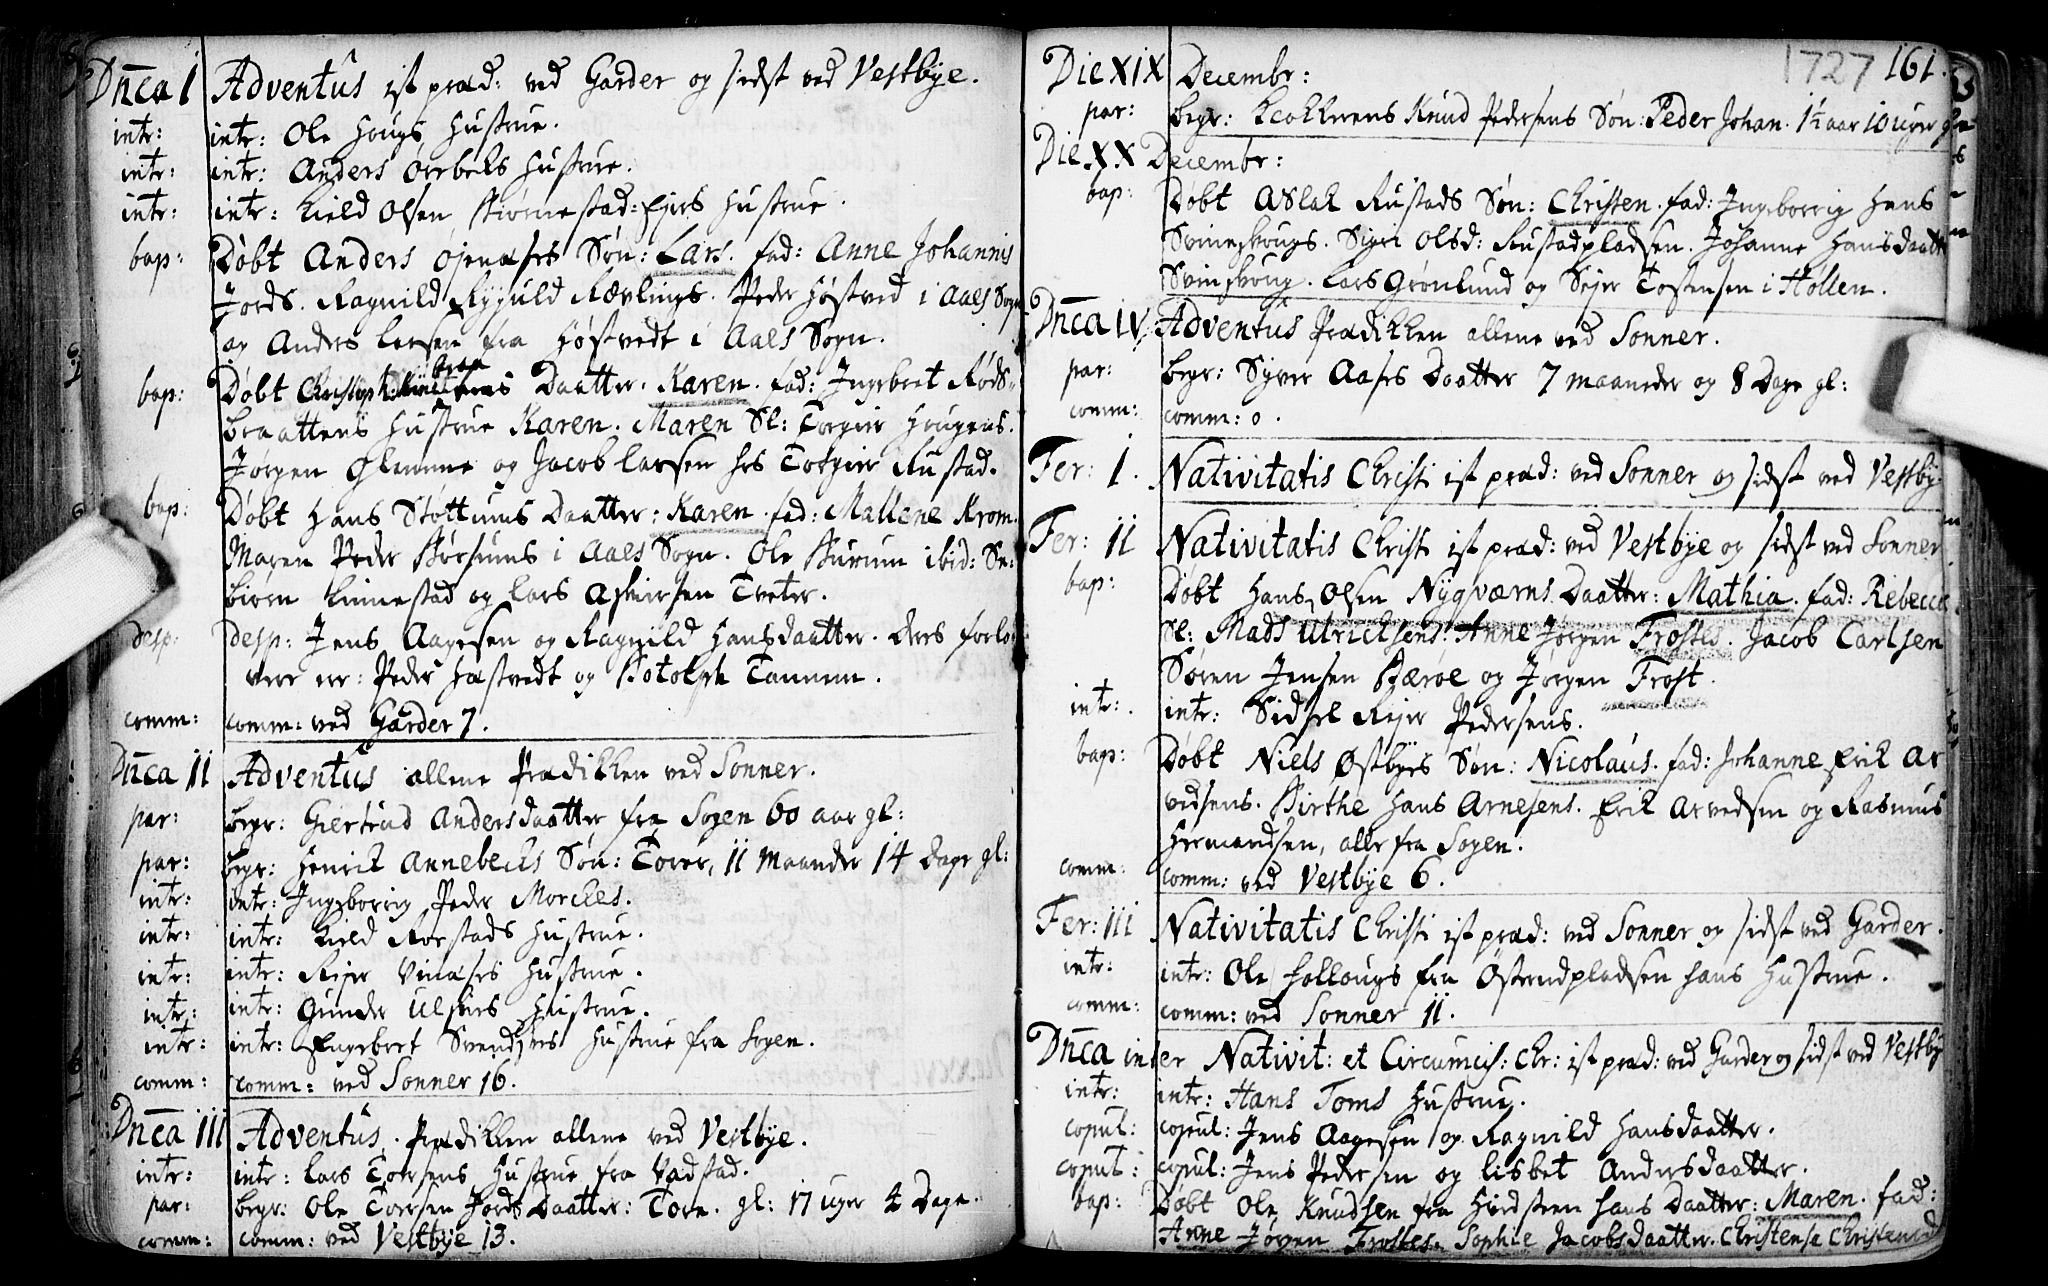 Dn̅ca I Adventûs ist præd: ved Garder og sidst ved Vestbye.
intr: intr: Ole Haugs Hustrue.
intr: intr: Anders Hustrue.
intr: intr: Kield Olsen Hustrue.
bap: Døbt Anders Søn: Lars. fad: Anne Johannis
Jords. Ragnild Rÿguld Peder Høstved i Aaes Sogn
og Anders Larsen fra Høstvedt i Aaes Sogn.
bap: Døbt Christoph: Daatter. Karen. fad: Ingebret Røds-
braattens Hustrue Karen. Maren Sl: Torgier Haugens.
Jørgen Glenne og Jacob Larsen hos Torgier Rustad.
bap: Døbt Hans Støttums Daatter: Karen. fad: Mallene Krom.
Maren Peder i Aaes Sogn. Ole ibid: Se-
biørn Linnestad og Lars Tveter.
desp: desp: Jens Aagesen og Ragnild Hansdaatter. deres forlo-
vere er: Peder Hæstvedt og Botolph Tannum.
comm: comm: ved Garder 7.
Dn̅ca II Adventûs allene Prædikken ved Sonner.
par: begr: Giertrud Andersdaatter fra Sogen 60 aar gl:
par: begr: Henrik Annebecks Søn: Tover, 11 Maander 14 Dage gl:
intr: intr: Ingeborrig Peder Morckes.
intr: intr: Kield Rorstads Hustrue.
intr: intr: Reier Hustrue.
intr: intr: Gunder Hustrue.
intr: intr: Engebret Hustrue fra Sogen.
comm: comm: ved Sonner 16.
Dn̅ca III Adventûs. Prædikken allene ved Vestbÿe.
intr: intr: Lars Hustrue fra Vadstad.
par: begr: Ole Jords Daatter: Tore. gl: 17 uger 2 Dage.
comm: comm: ved Vestbÿe 13.
1727 161.
Die XIX Decembr:
par: begr: Klokkerens Knud Pedersens Søn: Peder Johan. 1½ aar 10 uger gl
Die XX Decembr:
bap: Døbt Aslak Rustads Søn: Christen. fad: Ingeborrig Hans
Svinskougs. Sigri Olsd: Rustadpladsen. Johanne Hansdaatt
Svinskoug. Lars Grønlund og Sejer Tostensen i Hollen.
Dn̅ca IV Adventus Prædikken allene ved Sonner.
par: begr: Syver Aases Daatter 7 maaneder og 8 Dage gl:
comm: comm: 0.
Fer: I. Nativitatis Christi ist præd: ved Sonner og sidst ved Vestbÿ
Fer: II Nativitatis Christi ist præd: ved Vestbÿe og sidst ved Sonner
bap: Døbt Hans Olsen Nÿgværns Daatter: Mathia. fad: Rebecca
Sl: Mads Ulrichsens. Anne Jørgen Frostes. Jacob Carlsen
Søren Jensen Bærøe og Jørgen Frost.
intr: intr: Sidsel Rejer Pedersens.
bap: Døbt Niels Østbÿes Søn: Nicolaùs. fad: Johanne Erik Ar
vedsens. Birthe Hans Arnesens. Erik Arvedsen og Rasmus
Hermandsen, alle fra Sogen.
comm: comm: ved Vestbÿe 6.
Fer: III Nativitatis Christi ist præd: ved Sonner og sidst ved Garder.
intr: intr: Ole Hollougs fra Østendpladsen hans Hustrue.
comm: comm: ved Sonner 11.
Dn̅ca inter Nativit: et Circumcis: Chr: ist præd: ved Garder og sidst ved Vestbÿ
intr: intr: Hans Toms Hustrue.
copul: copul: Jens Aagesen og Ragnild Hansdaatter.
copul: copul: Jens Pedersen og Lisbet Andersdaatter.
bap: Døbt Ole Knudsen fra hans Daatter: Maren. fad:
Anne Jørgen Frostes. Sophie Jacobsdaatter. Christense